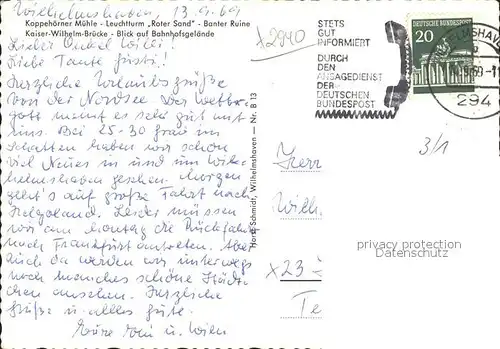 Wilhelmshaven, 13.9.69
Koppehörner Mühle - Leuchtturm „Roter Sand" - Banter Ruine
Kaiser-Wilhelm-Brücke - Blick auf Bahnhofsgelände
Lieber Onkel Willi!
Liebe Tante Justi!
Herzliche Urlaubsgrüße
von der Nordsee. Der Wetter-
gott meint es sehr gut mit
uns. Bei 25-30 Grad im
Schatten haben wir schon
viel Neues in und um Wil-
helmshaven gesehen. Morgen
geht's auf große Fahrt nach
Helgoland. Leider müssen
wir am Montag die Rückfahrt
nach Frankfurt antreten. Aber
auch da werden wir unterwegs
noch manches schöne Städt-
chen ansehen. Herzliche
Grüße u. alles gute.
Eure u. Wilm
Horst Schmidt, Wilhelmshaven — Nr. B 13
x2940
STETS
GUT
INFORMIERT
DURCH
DEN
ANSAGEDIENST
DER
DEUTSCHEN
BUNDESPOST
DEUTSCHE BUNDESPOST
20
294
3/1
Herrn
Wilh.
x23
Te
privacy protection
Datenschutz